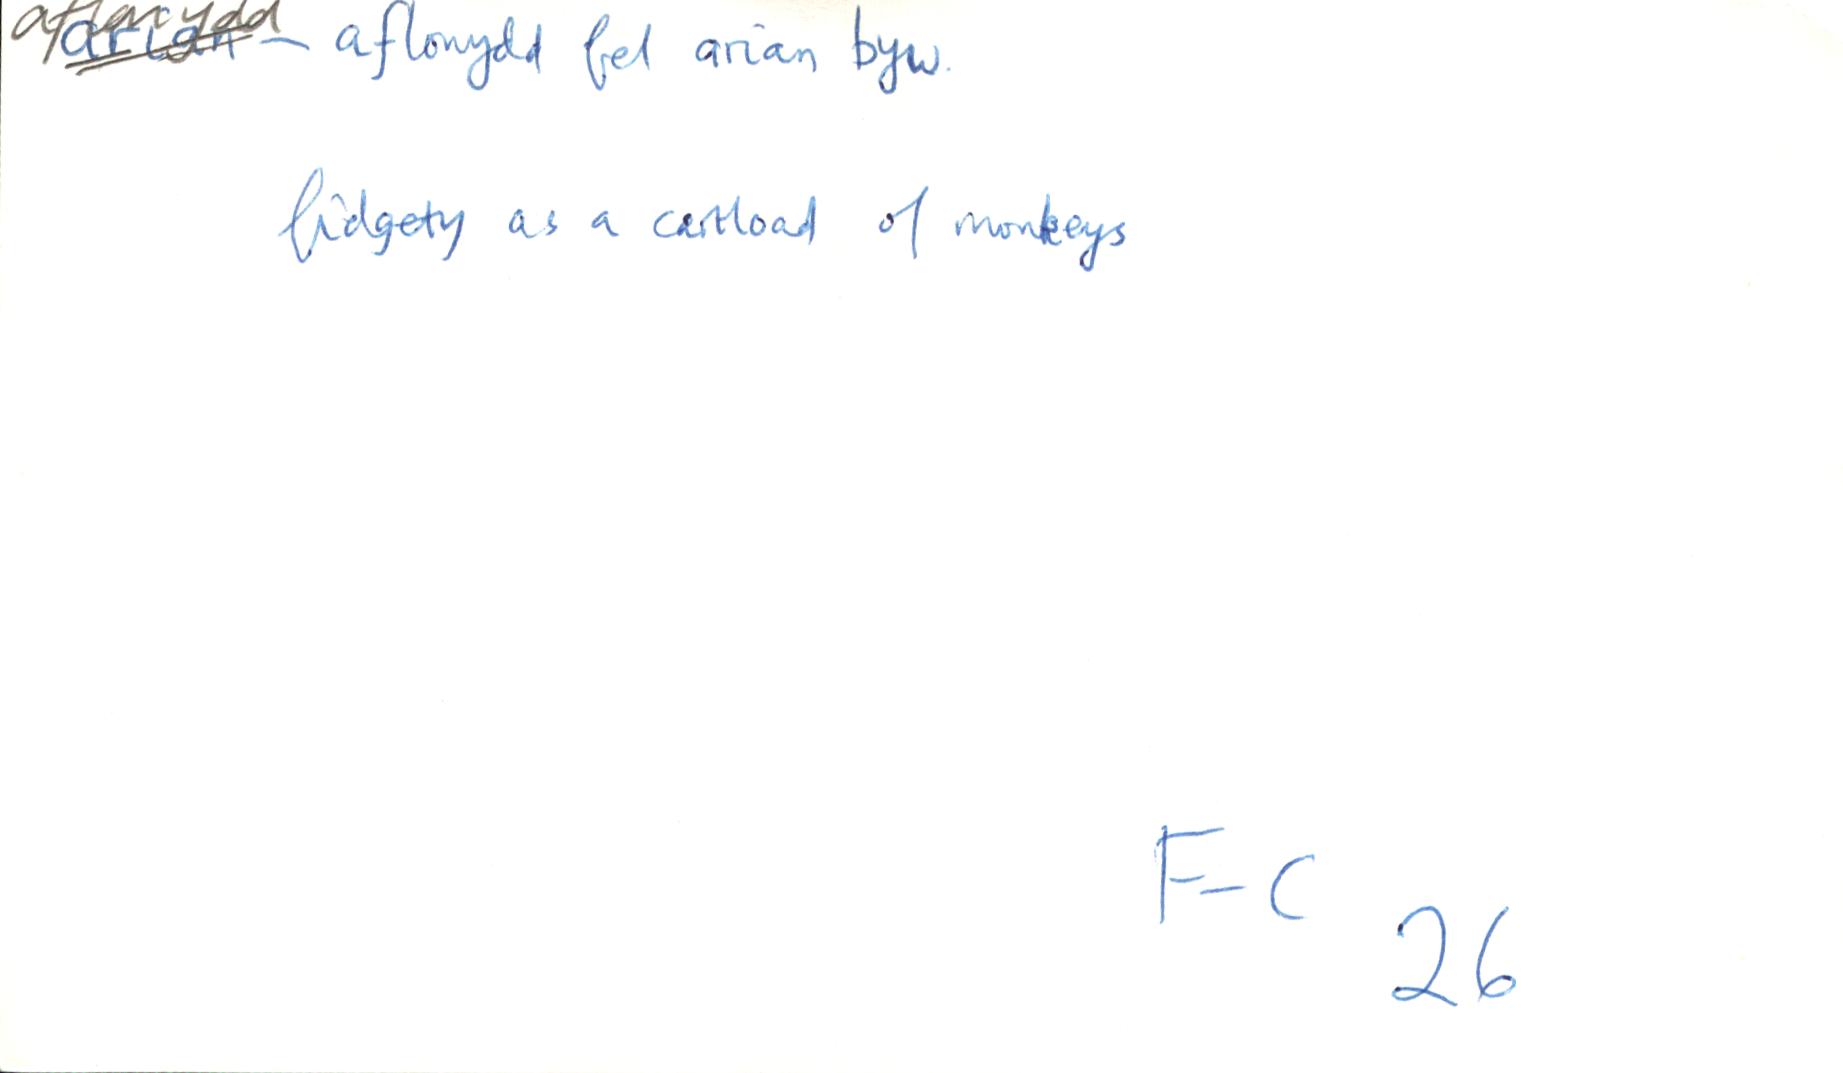 aflonydd
arian – aflonydd fel arian byw.
fidgety as a cartload of monkeys
F-C
26